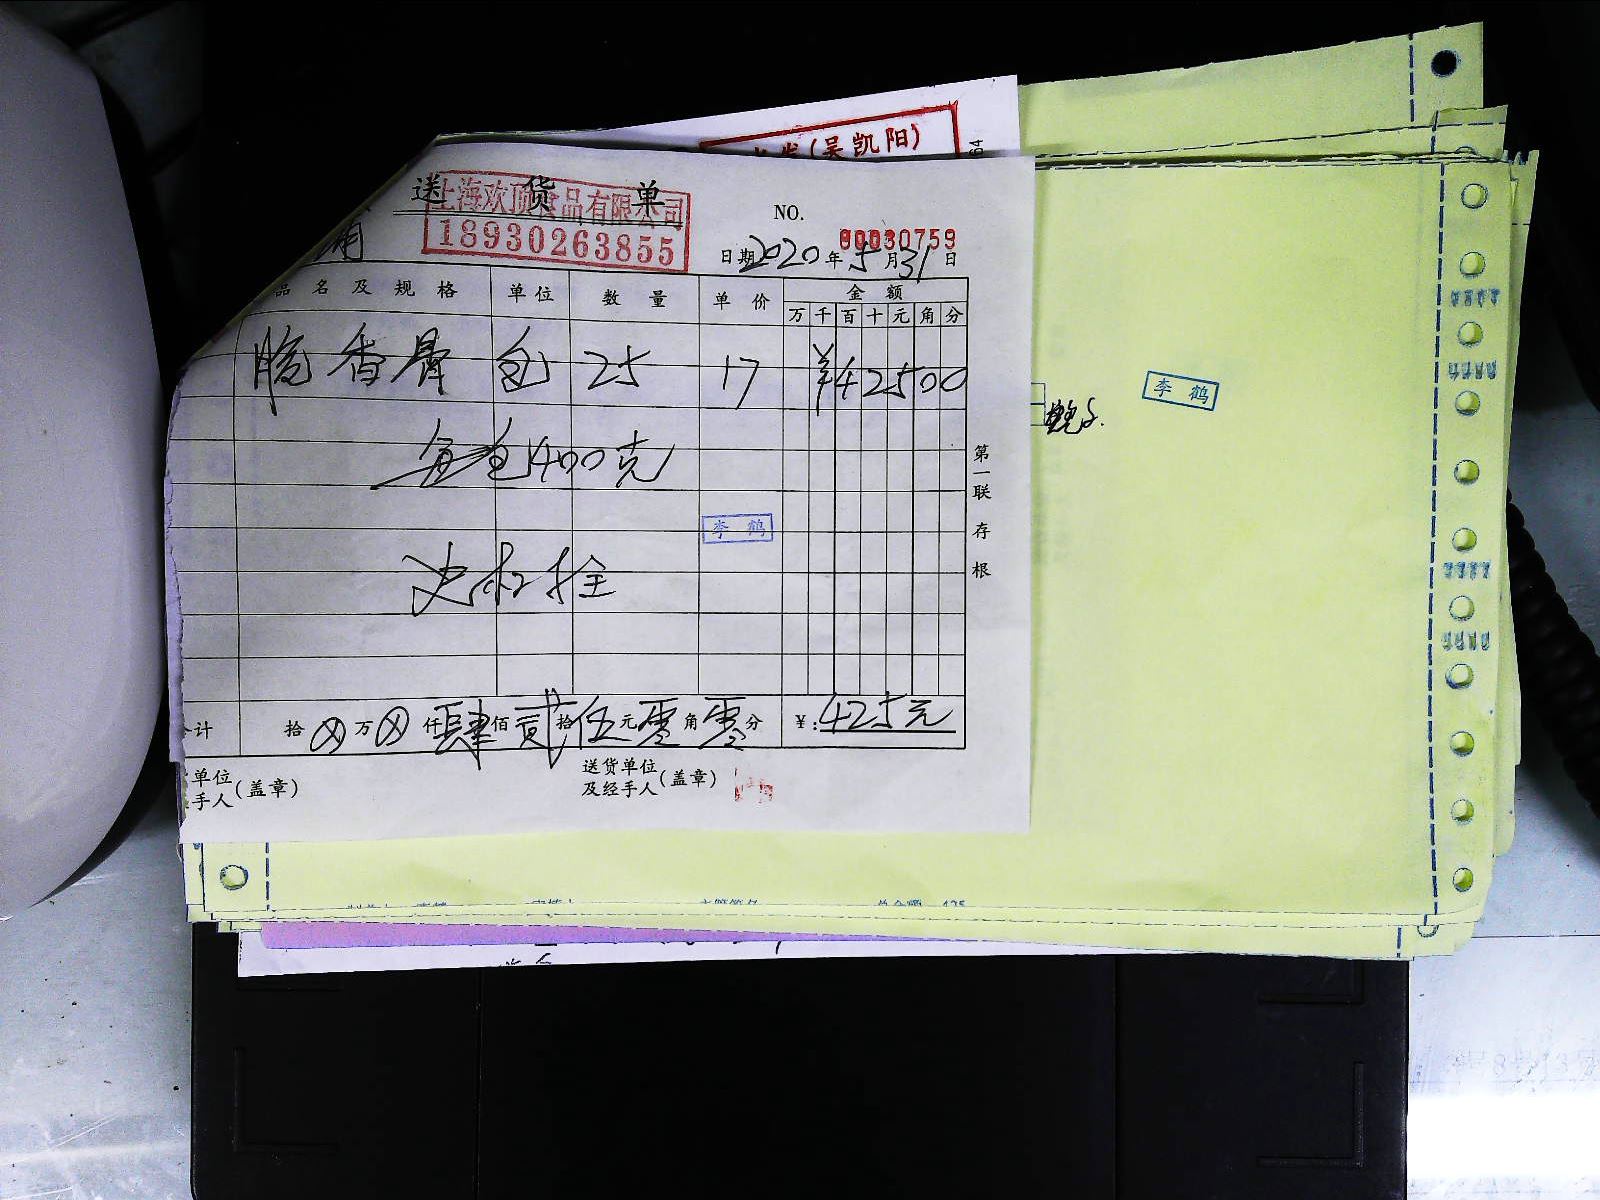 (吴凯阳)
64
送货单
上海欢顶食品有限公司
18930263855
NO.
00030759
日期2020年5月31日
品名及规格 单位 数量 单价 金额
万千百十元角分
脆香骨 包 25 17 ¥42500
每包400克
李鹤
第一联存根
李鹤
合计 拾⊗万⊗仟肆佰贰拾伍元零角零分 ¥:425元
单位
手人(盖章)
送货单位
及经手人(盖章)